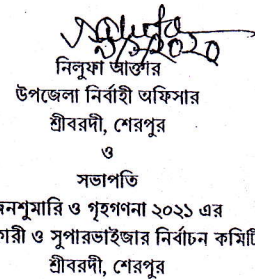 নিলুফা আক্তার
উপজেলা নির্বাহী অফিসার
শ্রীবরদী, শেরপুর
ও
সভাপতি
নশুমারি ও গৃহগণনা ২০২১ এর
কারী ও সুপারভাইজার নির্বাচন কমিটি
শ্রীবরদী, শেরপুর